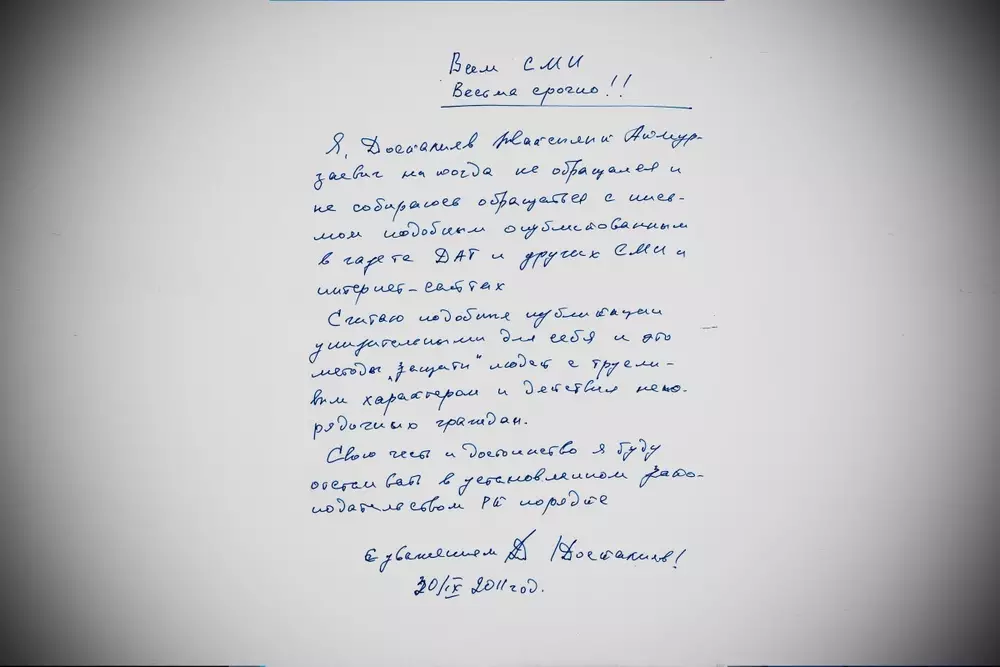 Всем СМИ
Весьма срочно!!
Я, Досталиев Жаксылык Аюмур-
заевич никогда не обращался и
не собираюсь обращаться с пись-
мом подобным опубликованным
в газете ДАТ и других СМИ и
интернет-сайтах
Считаю подобные публикации
унизительными для себя и это
методы „защиты" людей с трусли-
вым характером и действия непо-
рядочных граждан.
Свою честь и достоинство я буду
отстаивать в установленном зако-
нодательством РК порядке
С уважением Д /Досталиев/
20/IX 2011 год.